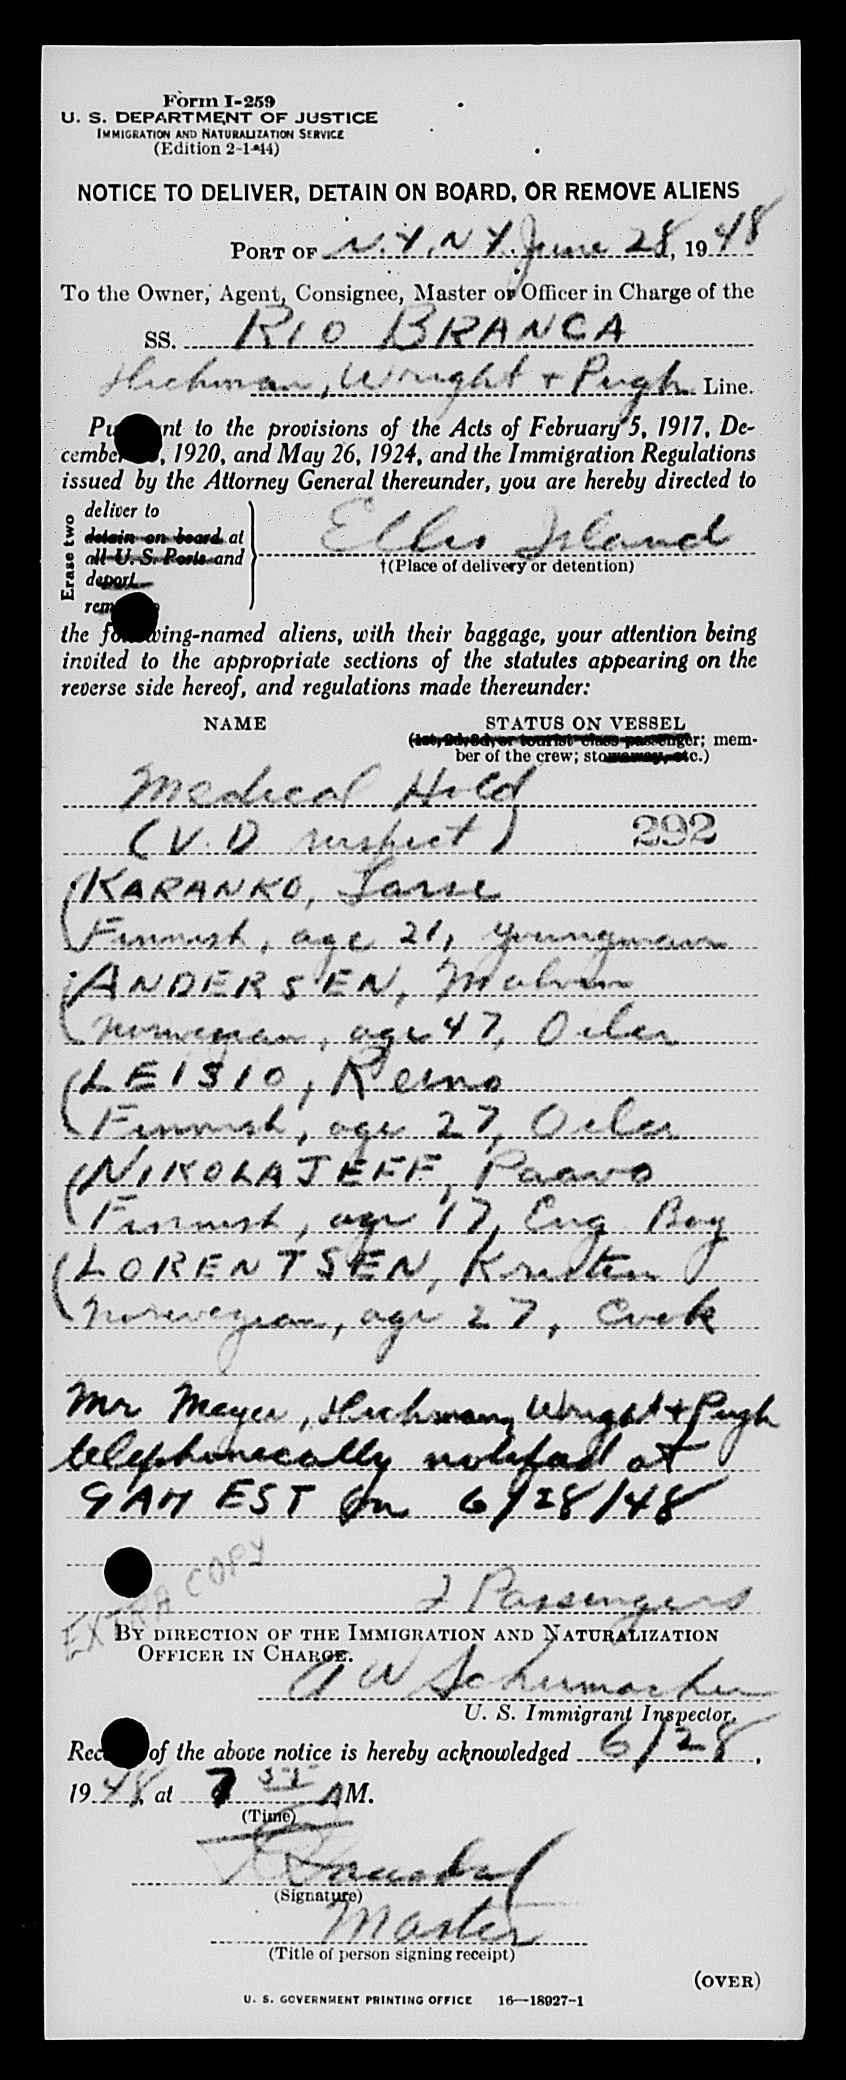 Form I-259
U. S. DEPARTMENT OF JUSTICE
IMMIGRATION AND NATURALIZATION SERVICE
(Edition 2-1-44)
NOTICE TO DELIVER, DETAIN ON BOARD, OR REMOVE ALIENS
PORT OF N.Y. N Y. June 28, 19 48
To the Owner, Agent, Consignee, Master or Officer in Charge of the
SS. RIO BRANCA
Hickman, Wright + Pugh Line.
Pu nt to the provisions of the Acts of February 5, 1917, De-
cembe , 1920, and May 26, 1924, and the Immigration Regulations
issued by the Attorney General thereunder, you are hereby directed to
Erase two
deliver to
detain on board at
all U. S. Ports and
deport
rem
Ellis Island
†(Place of delivery or detention)
the fo wing-named aliens, with their baggage, your attention being
invited to the appropriate sections of the statutes appearing on the
reverse side hereof, and regulations made thereunder:
NAME STATUS ON VESSEL
(1st, 2d, 3d, or tourist class passenger; mem-
ber of the crew; stowaway, etc.)
Medical Hold
(V. D suspect) 292
KARANKO, Lasse
Finnish, age 21, youngman
ANDERSEN, Malvin
Norwegian, age 47, Oiler
LEISIO, Reino
Finnish, age 27, Oiler
NIKOLAJEFF, Paavo
Finnish, age 17, Eng. Boy
LORENTSEN, Kristen
Norwegian, age 27, Cook
Mr Meyer, Hickman, Wright + Pugh
telephonically notified at
9 AM EST on 6/28/48
EXTRA COPY
2 Passengers
BY DIRECTION OF THE IMMIGRATION AND NATURALIZATION
OFFICER IN CHARGE.
A W Schumacher
U. S. Immigrant Inspector.
Rec of the above notice is hereby acknowledged 6/28,
1948, at 7 55 AM.
(Time)
(Signature)
Master
(Title of person signing receipt)
(OVER)
U. S. GOVERNMENT PRINTING OFFICE 16—18927-1